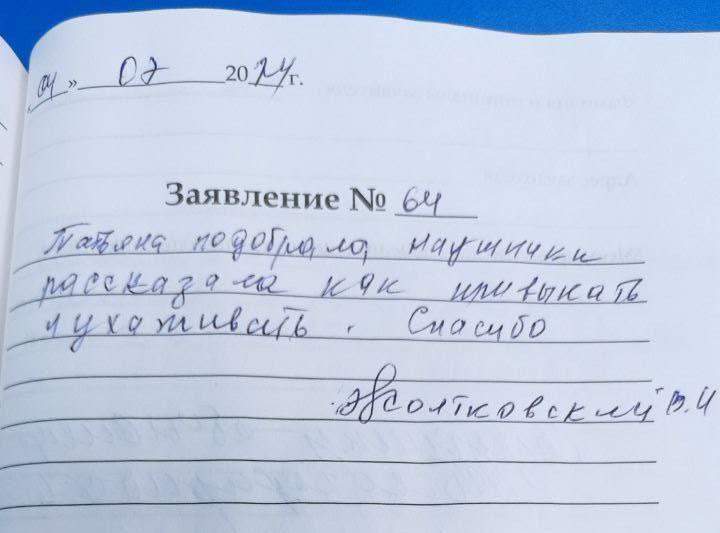 04 » 07 2024 г.
Заявление № 64
Татьяна подобрала наушники
рассказала как привыкать
и ухаживать. Спасибо
В.И